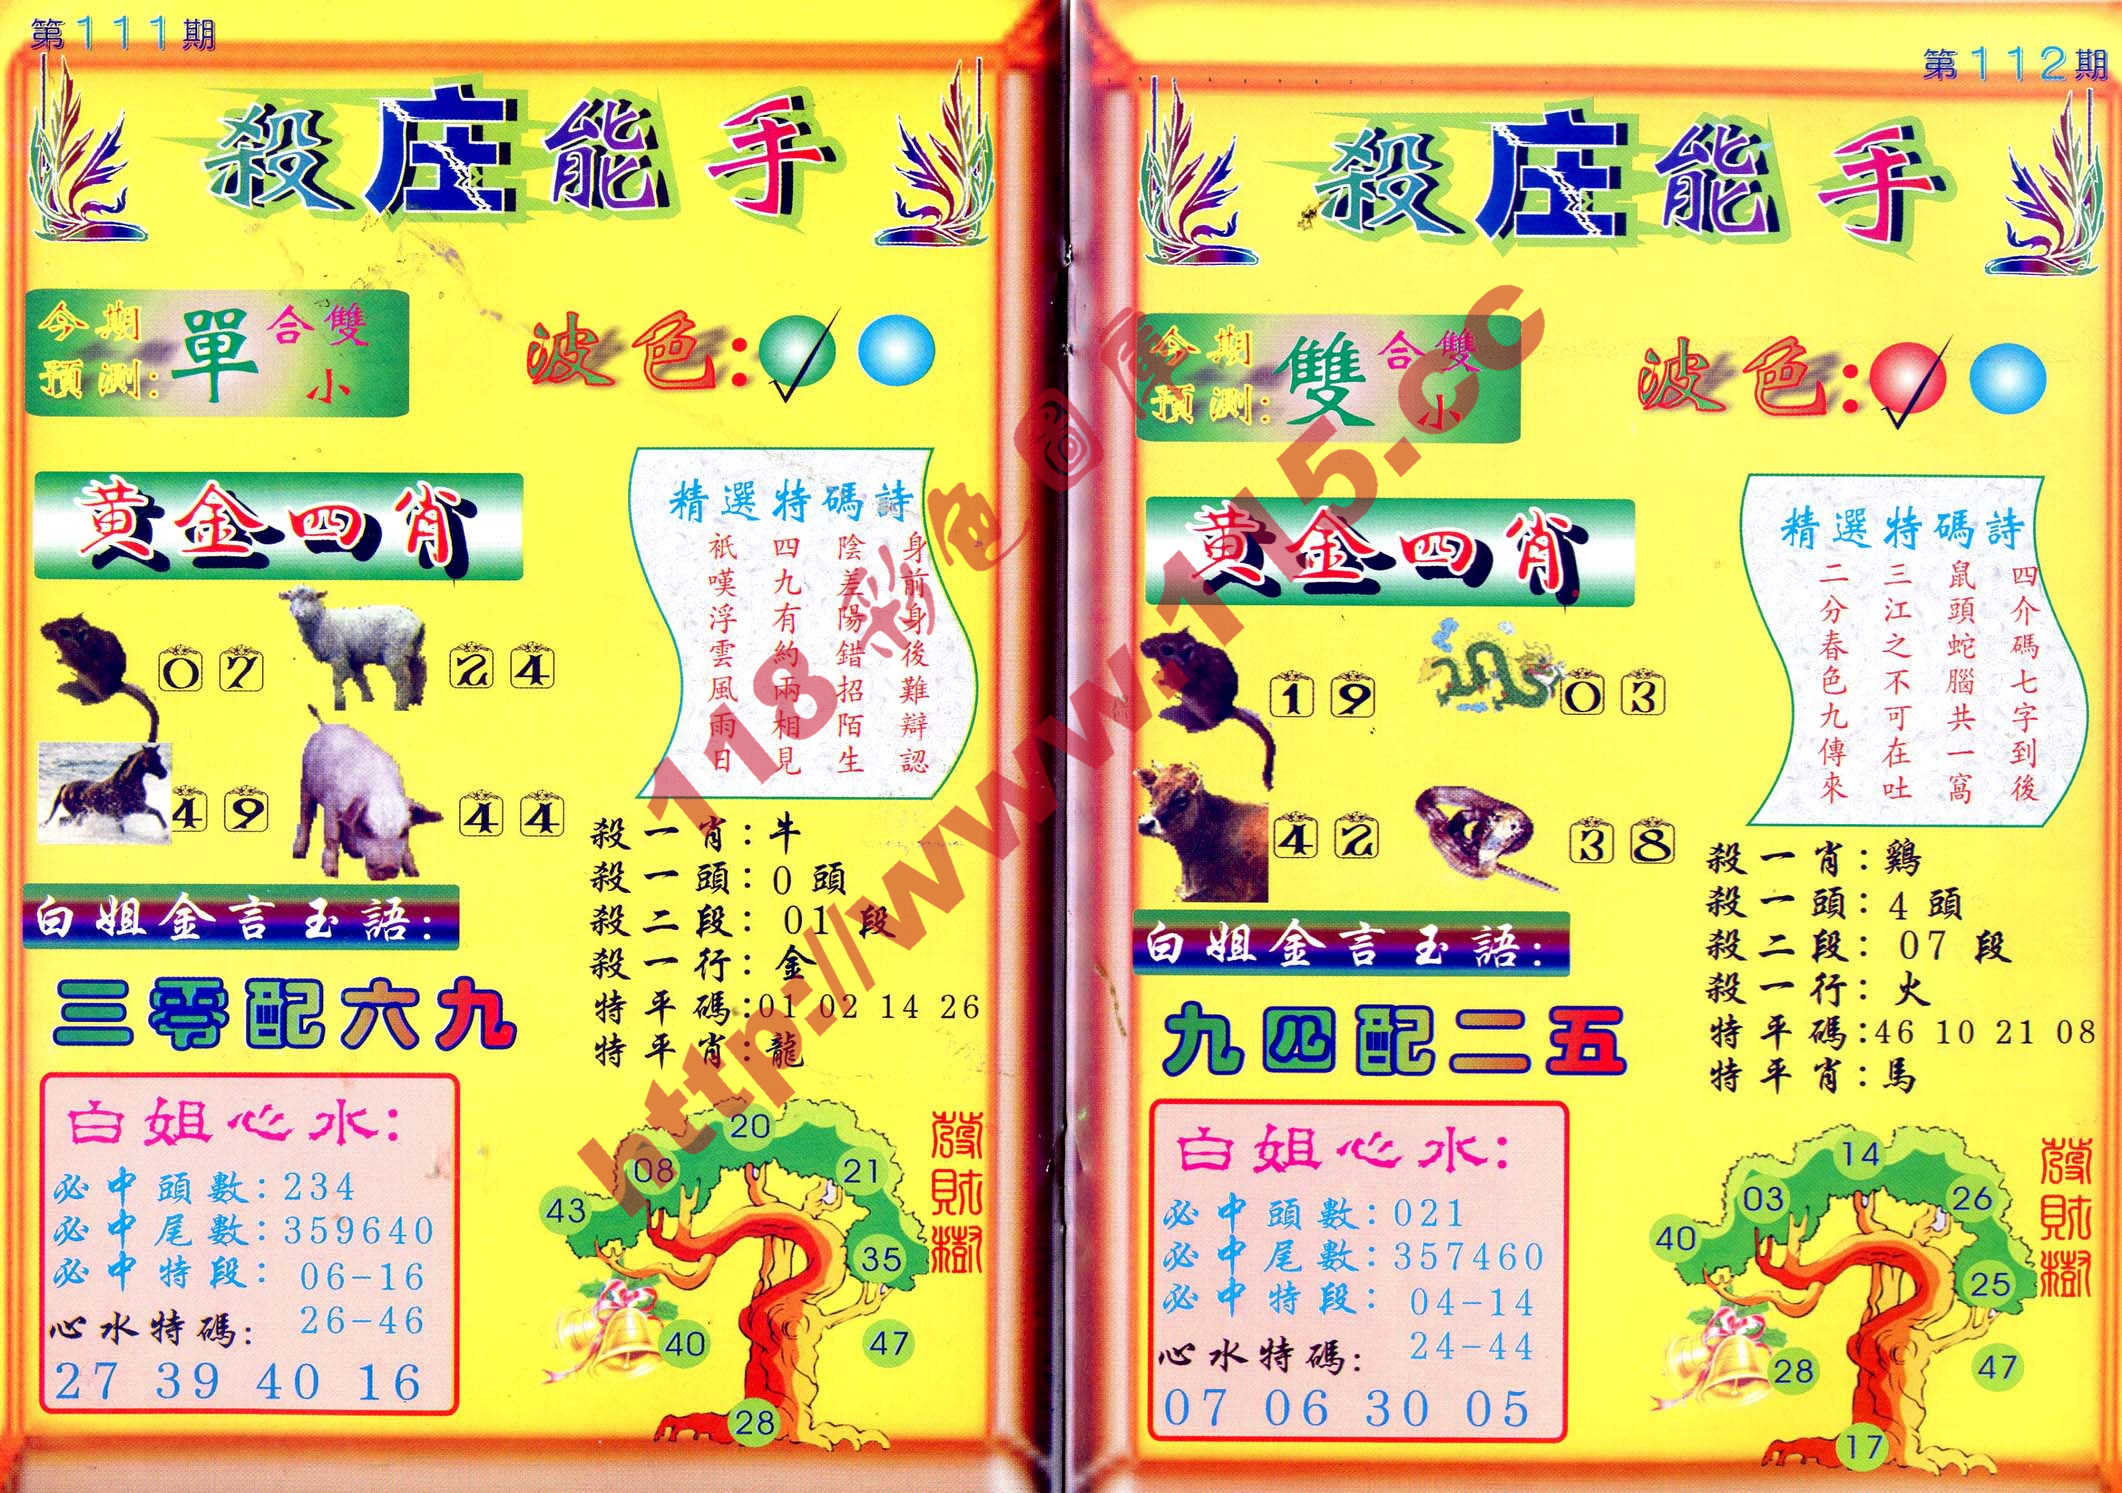 第111期
殺庄能手
今期預測: 單 合雙 小
波色:
黄金四肖
07
24
49
44
精選特碼詩
身前身後難辯認
陰差陽錯招陌生
四九有約兩相見
祇嘆浮雲風雨日
殺一肖:牛
殺一頭:0頭
殺二段: 01 段
殺一行:金
特平碼:01 02 14 26
特平肖:龍
白姐金言玉語:
三零配六九
白姐心水:
必中頭數:234
必中尾數:359640
必中特段: 06-16
26-46
心水特碼:
27 39 40 16
發財樹
20
08
21
43
35
40
47
28
第112期
殺庄能手
今期預測: 雙 合雙 小
波色:
黄金四肖
19
03
42
38
精選特碼詩
四介碼七字到後
鼠頭蛇腦共一窩
三江之不可在吐
二分春色九傳來
殺一肖:鷄
殺一頭:4頭
殺二段: 07 段
殺一行:火
特平碼:46 10 21 08
特平肖:馬
白姐金言玉語:
九四配二五
白姐心水:
必中頭數:021
必中尾數:357460
必中特段: 04-14
24-44
心水特碼:
07 06 30 05
發財樹
14
03
26
40
25
28
47
17
118彩色圖庫
http://www.115.cc